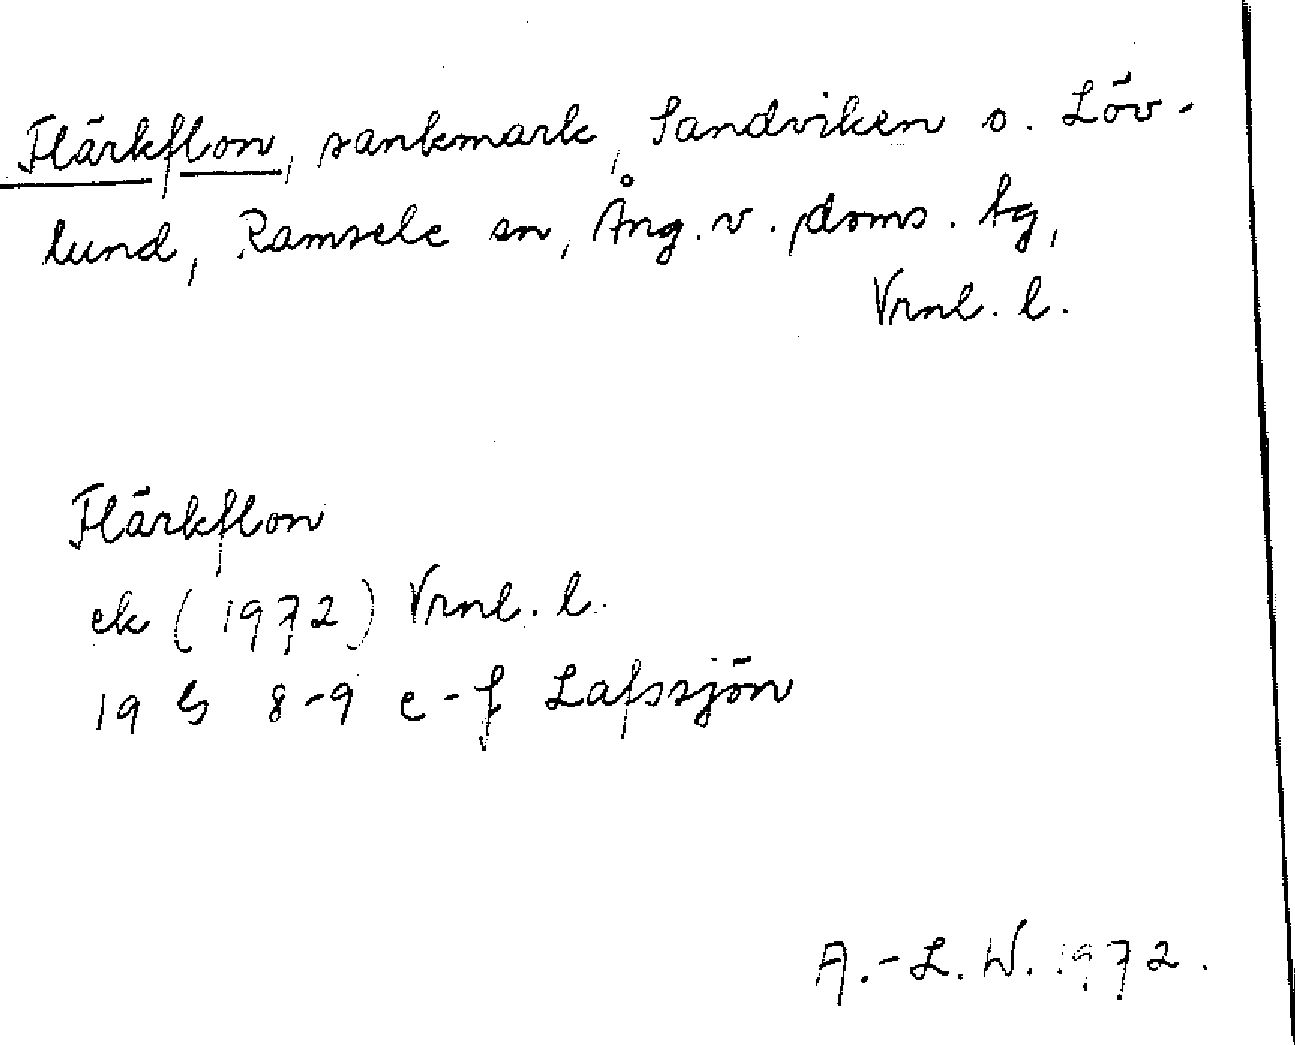 Flärkflon, sankmark, Sandviken o. Löv-
lund, Ramsele sn, Ång. v. doms. tg,
Vrnl. l.
Flärkflon
ek (1972) Vrnl. l.
19 G 8-9 e-f Lafssjön
A.-L. W. 1972.